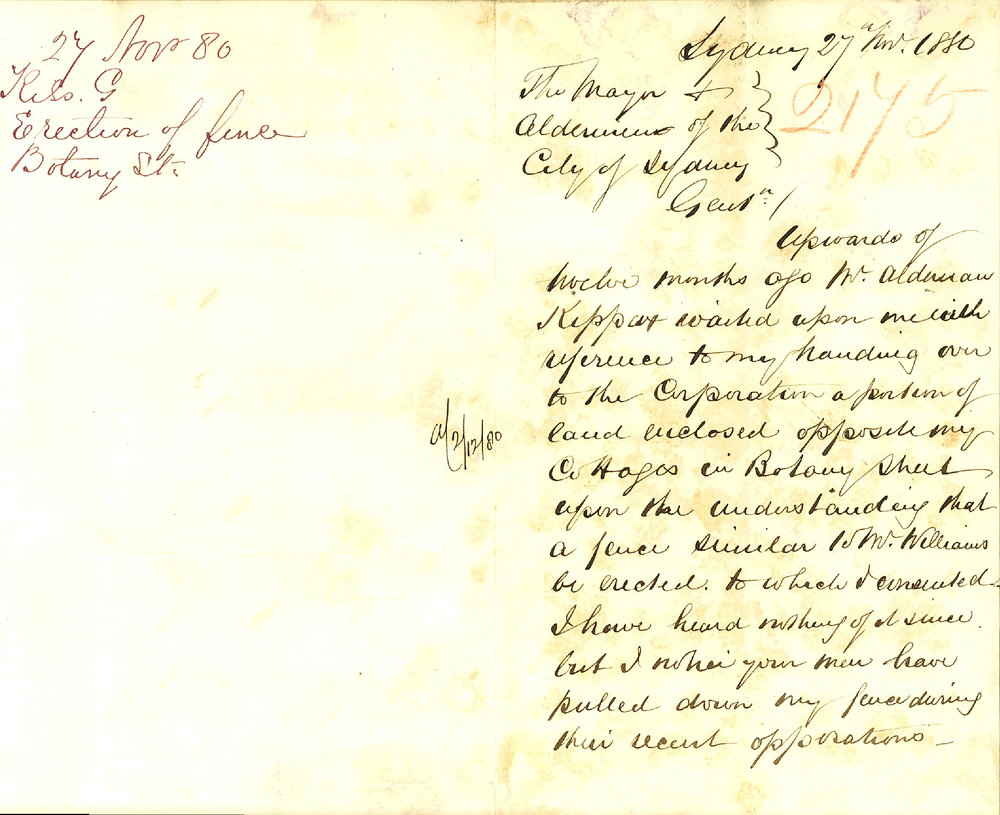 27 Novr 80
Kiss. G
Erection of fence
Botany St.
a/2/12/80
Sydney 27th Nov. 1880
The Mayor &
Aldermen of the
City of Sydney
2175
Gentn/
Upwards of
twelve months ago Mr. Alderman
Kippax waited upon me with
reference to my handing over
to the Corporation a portion of
land enclosed opposite my
Cottages in Botany Street
upon the understanding that
a fence similar to Mr. Williams
be erected. to which I consented.
I have heard nothing of it since.
but I notice your men have
pulled down my fence during
their recent opporations—